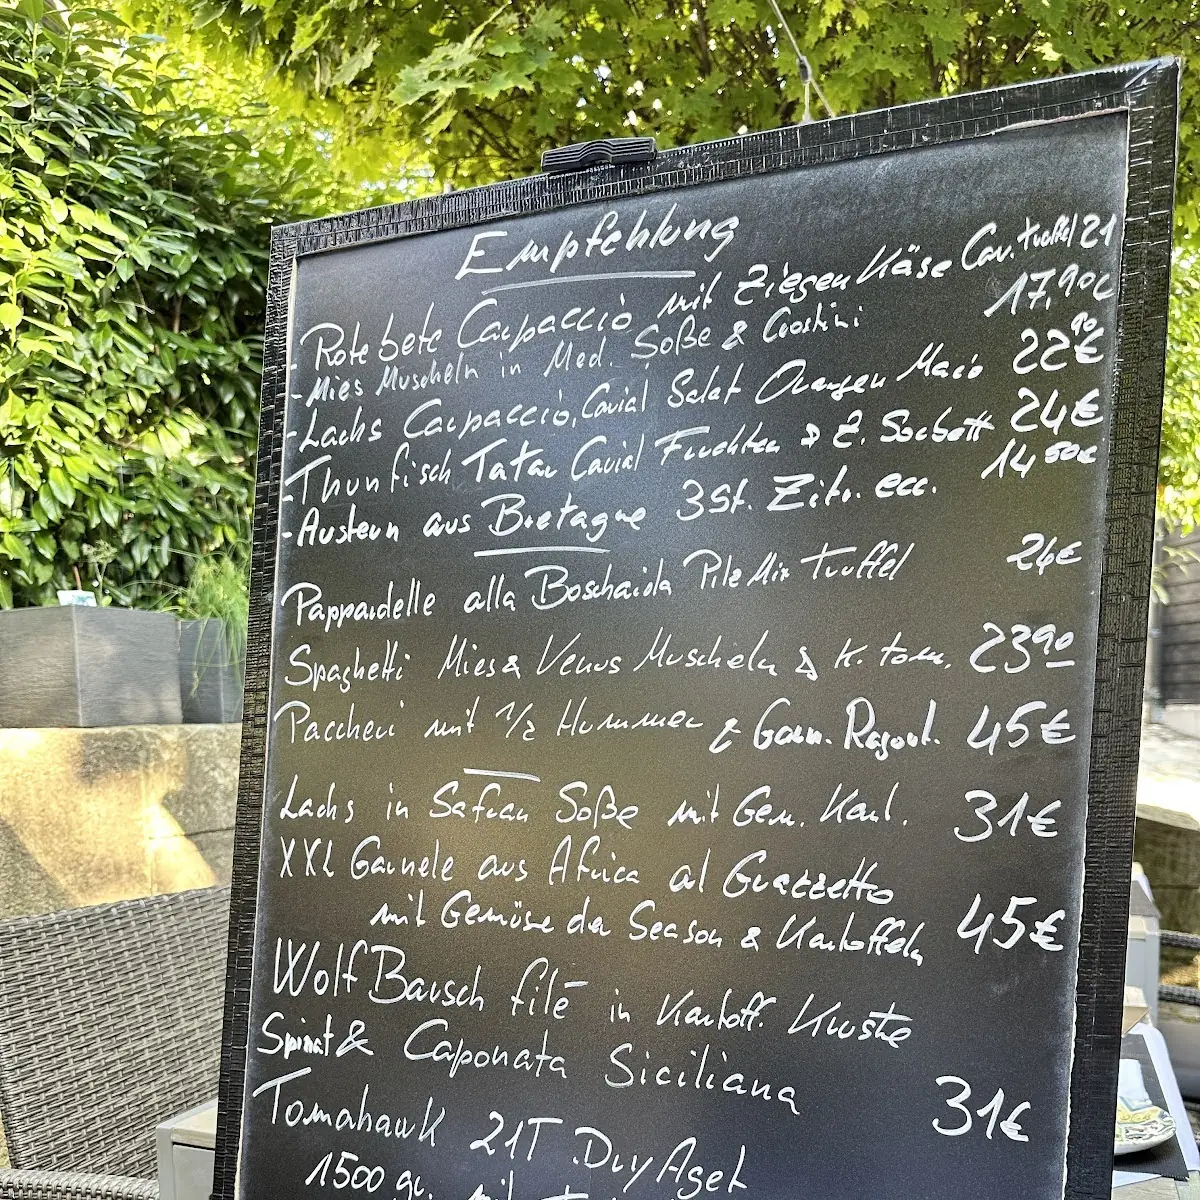 Empfehlung
- Rote bete Carpacciò mit Ziegen Käse Cav. truffel 21
- Mies Muscheln in Med. Soße & Crostini 17,90€
- Lachs Carpacciò, Cavial Salat Orangen Maiò 22,90€
- Thunfisch Tatar Cavial Fruchten & Z. Sorbett 24€
- Austern aus Bretagne 3St. Zitr. ecc. 14,50€
Pappardelle alla Boschaiola Pilz Mix truffel 26€
Spaghetti Mies & Venus Muscheln & K. tom. 23,90
Paccheri mit 1/2 Hummer & Garn. Ragout. 45€
Lachs in Safran Soße mit Gem. Kart. 31€
XXL Garnele aus Africa al Guazzetto
mit Gemüse der Season & Kartoffeln 45€
Wolf Barsch filé in Kartoff. Kruste
Spinat & Caponata Siciliana 31€
Tomahawk 21T. Dry Aget
1500 gr. mit